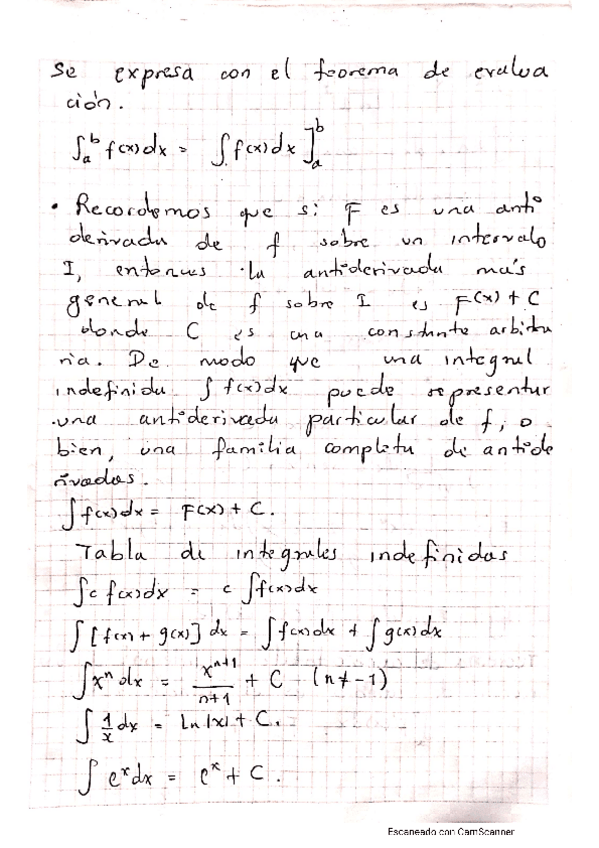 Se expresa con el teorema de evalua
ción.
∫ₐᵇ f(x)dx = ∫f(x)dx]ₐᵇ
• Recordemos que si F es una anti
derivada de f sobre un intervalo
I, entonces la antiderivada más
general de f sobre I es F(x) + C
donde C es una constante arbitra
ria. De modo que una integral
indefinida ∫ f(x)dx puede representar
una antiderivada particular de f, o
bien, una familia completa de antide
rivadas.
∫f(x)dx = F(x) + C.
Tabla de integrales indefinidas
∫c f(x)dx = c ∫f(x)dx
∫[f(x) + g(x)] dx = ∫f(x)dx + ∫g(x)dx
∫xⁿ dx = xⁿ⁺¹/n+1 + C (n ≠ -1)
∫ 1/x dx = ln|x| + C.
∫ eˣdx = eˣ + C.
Escaneado con CamScanner